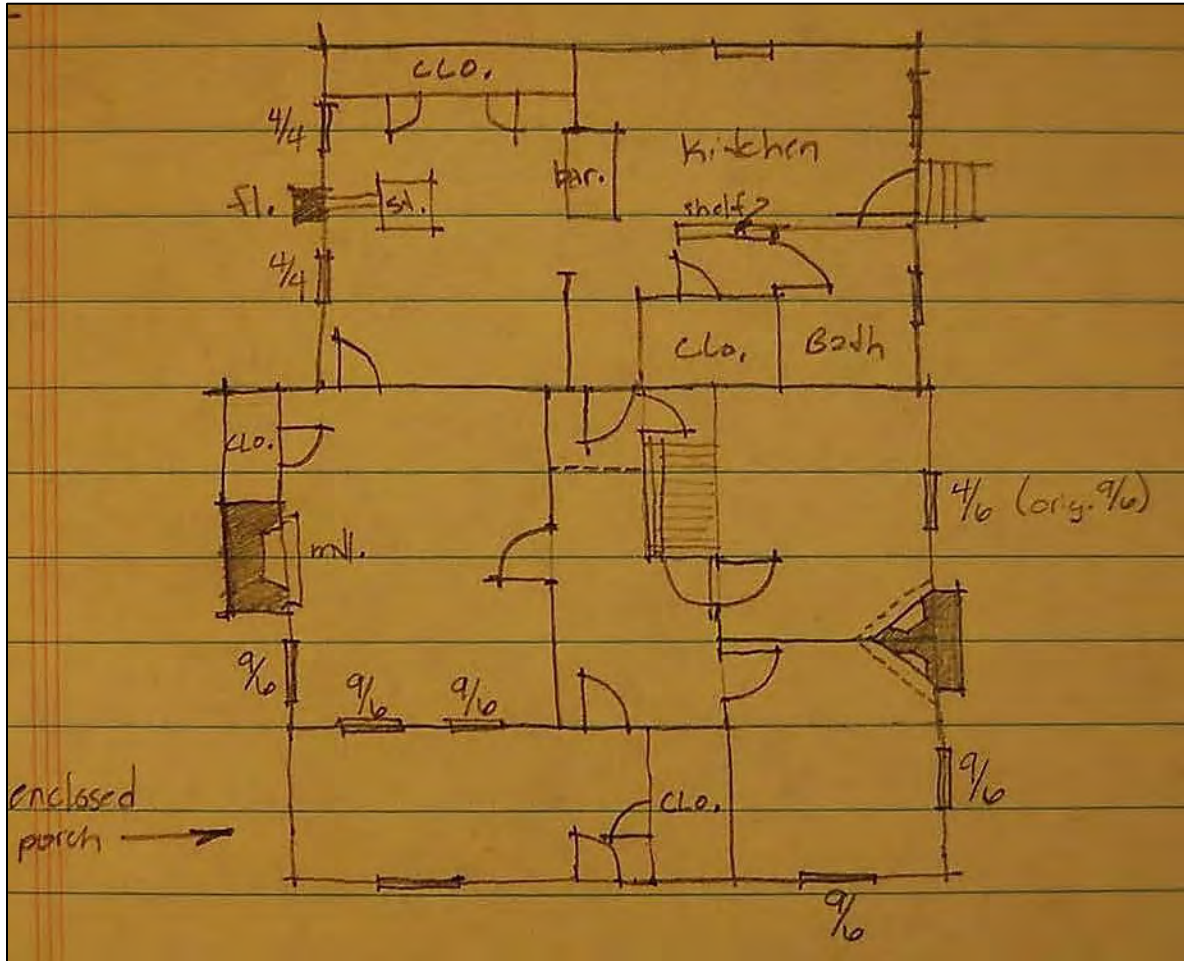 CLO.
4/4
Kitchen
bar.
fl.
st.
shelf?
4/4
CLO.
Bath
CLO.
4/6 (orig. 9/6)
mtl.
9/6
9/6
9/6
9/6
enclosed
porch
CLO.
9/6